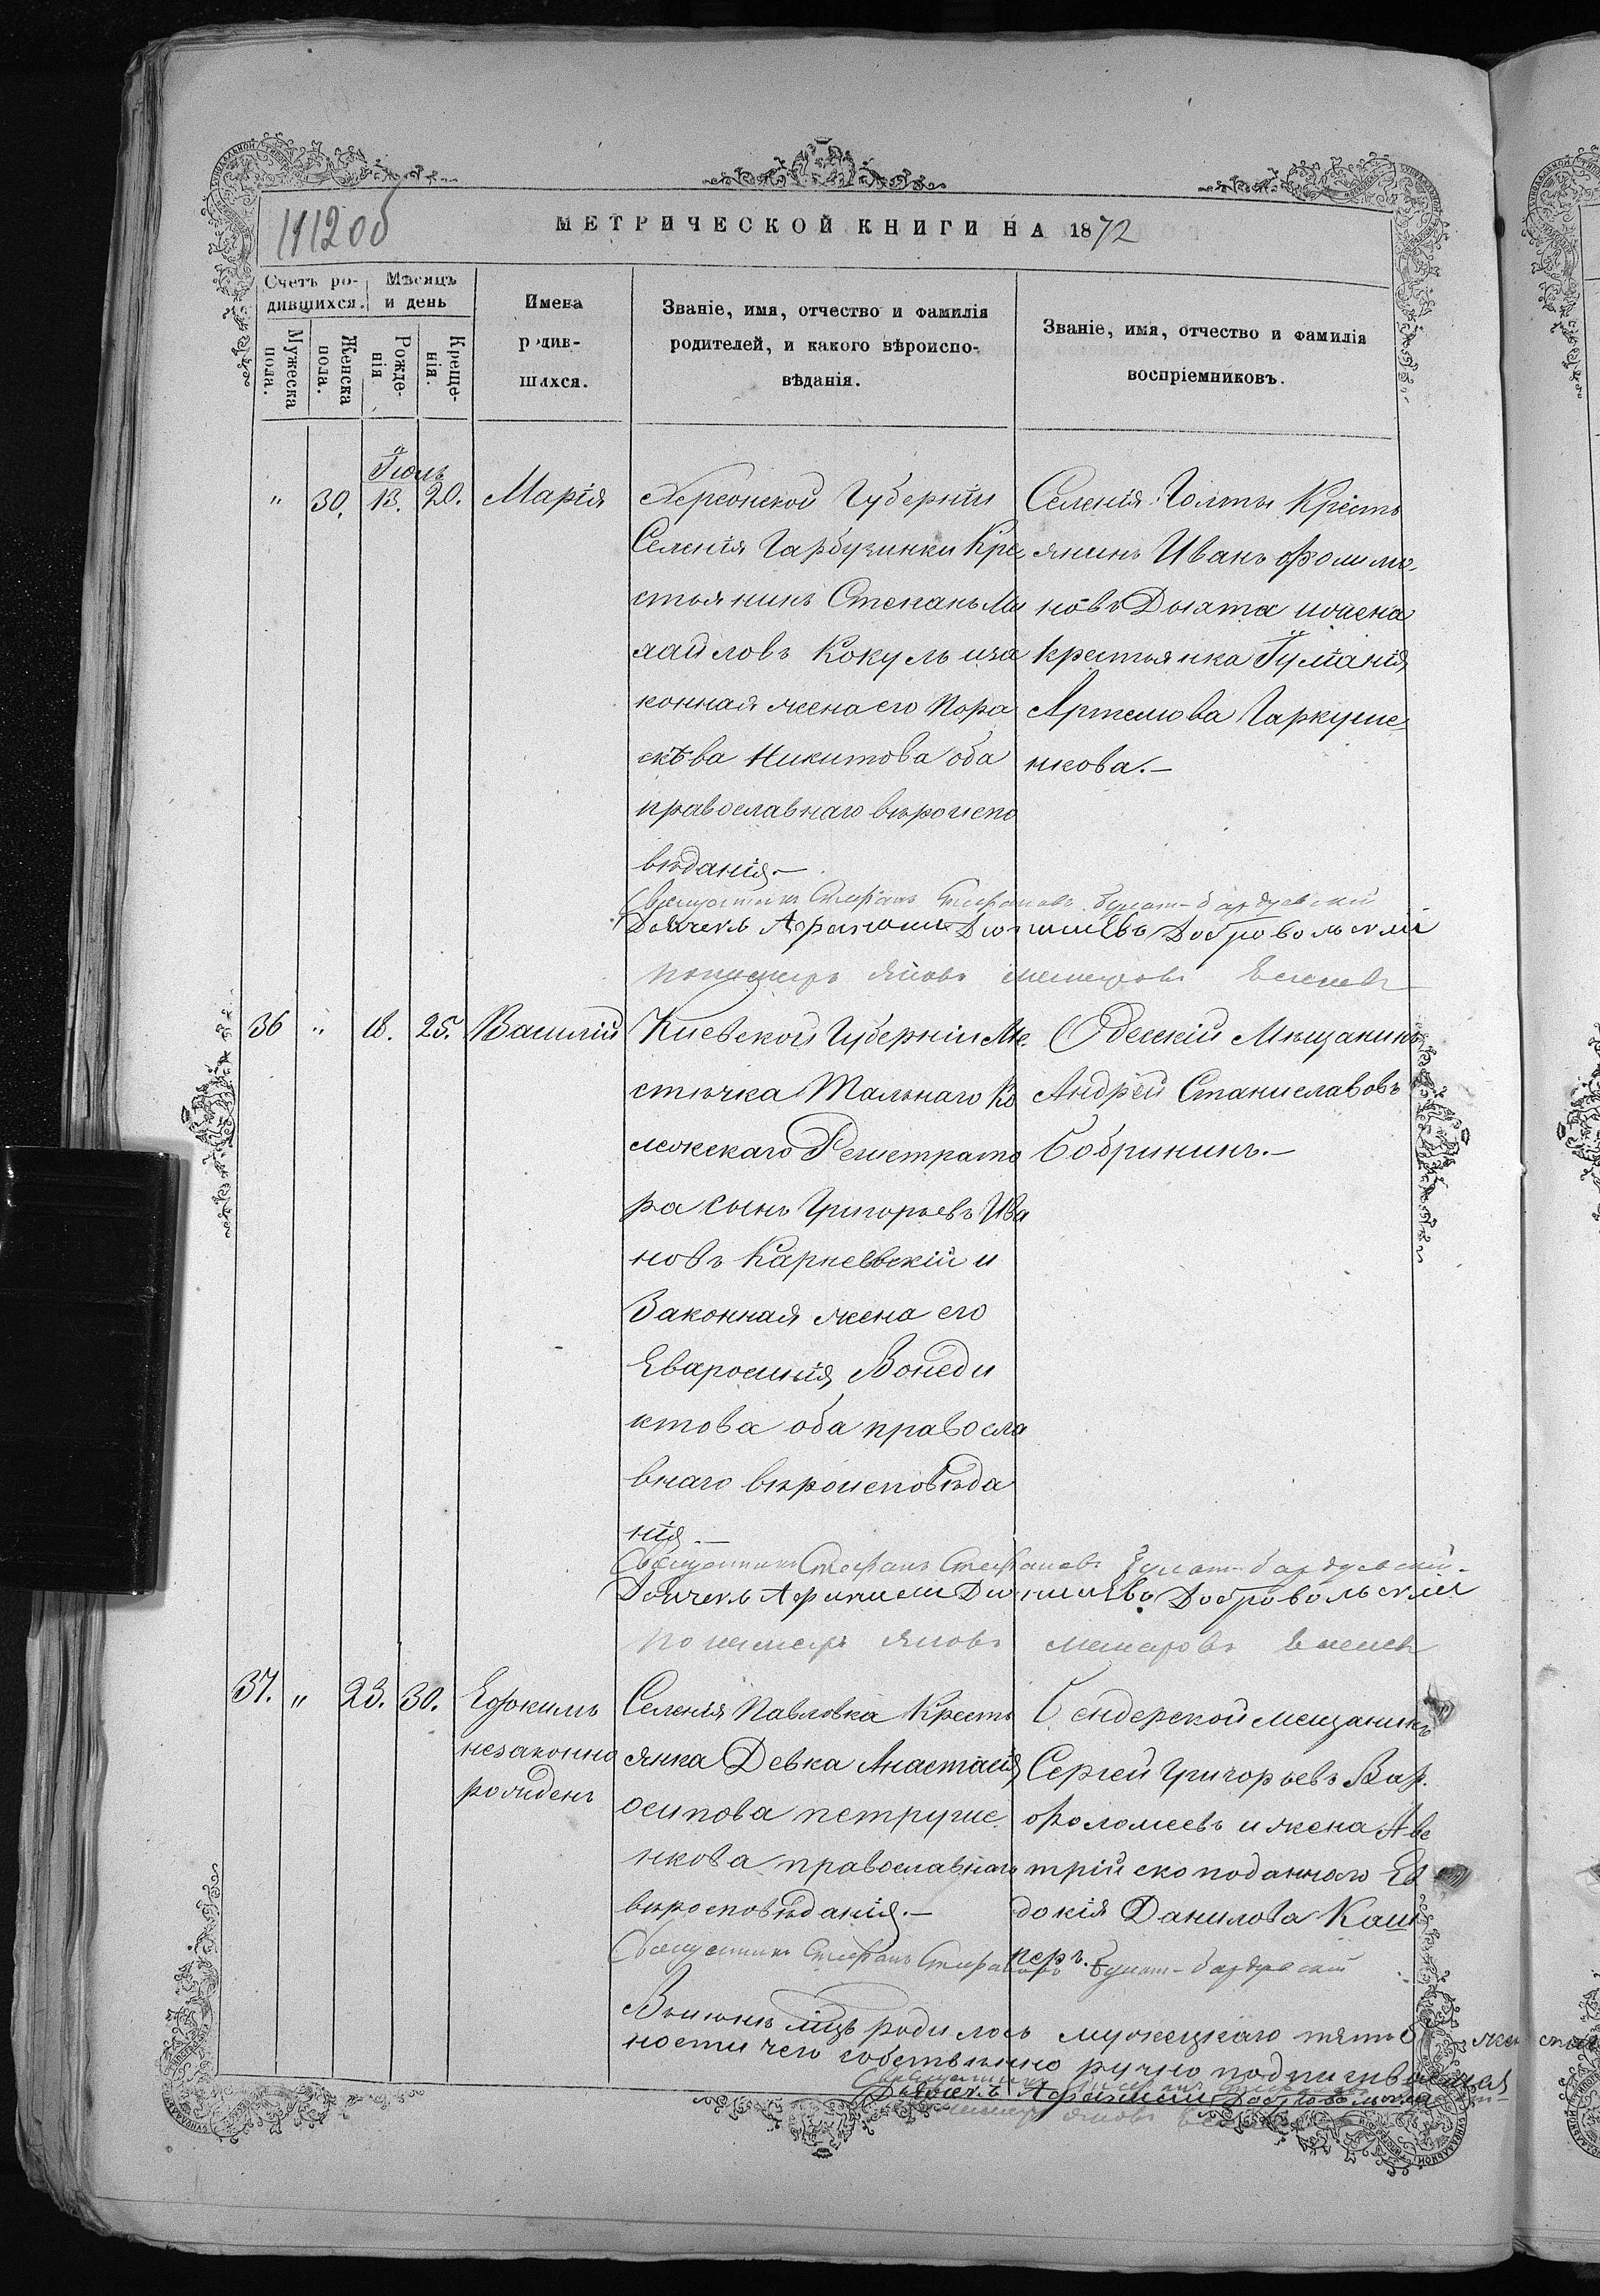 1112об
МЕТРИЧЕСКОЙ КНИГИ НА 1872
Счетъ ро-
дившихся.
Мѣсяцъ
и день
Мужеска
пола.
Женска
пола.
Рожде-
нія
Креще-
нія.
Имена
родив-
шихся.
Званіе, имя, отчество и фамилія
родителей, и какого вѣроиспо-
вѣданія.
Званіе, имя, отчество и фамилія
воспріемниковъ.
Іюль
" 30. 13. 20. Марія
Херсонской Губерніи
Селенія Гарбузинки Кре
стьянинъ Степанъ Ми
хайловъ Кокуль иза
конная жена его Пора
скѣва Никитова оба
православнаго вѣроиспо
вѣданія.—
Селенія Голты Кресть
янинъ Иванъ Филимо
новъ Доята ижена
крестьянка Іуліанія
Артемова Гаркуше
нкова.—
Священникъ Стефанъ Стефановъ Булат-бардуевскій
Дьячекъ Афанасій Діонисіевъ Добровольскій
Пономарь Яковъ
36 " 18. 25. Василій
Киевской Губерніи Ме
стечка Тальнаго Ко
лежскаго Регистрато
ра сынъ Григорьевъ Ива
новъ Карпевскій и
Законная жена его
Евфросинія Вонеди
ктова оба правосла
внаго вѣроисповѣда
нія.—
Одесскій Мѣщанинъ
Андрей Станиславовъ
Бобринин.—
Священникъ Стефанъ Стефановъ Булат-бардуевскій
Дьячекъ Афанасій Діонисіевъ Добровольскій
Пономарь Яковъ
37. " 23. 30. Ефкимъ
незаконно
рожденъ
Селенія Павловка Кресть
янка Девка Анастасія
осипова петруше
нкова православнаго
вѣросповѣданія.—
Бендерской мещанинъ
Сергей Григорьевъ Вар
фоломеевъ и жена Авс
трійско поданного Ев
докія Данилова Каш
перъ.—
Священникъ Стефанъ Стефановъ Булат-бардуевскій
родилось мужецкаго
ности чего собственно ручно подписываемся
Дьячекъ Афанасій Добровольскій
Яковъ